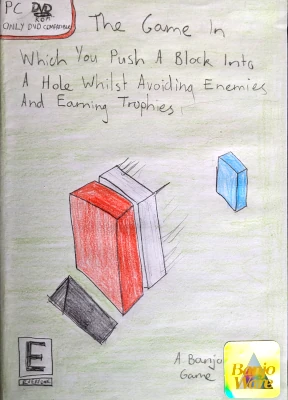 PC DVD
ROM
ONLY DVD COMPATIBLE
The Game In
Which You Push A Block Into
A Hole Whilst Avoiding Enemies
And Earning Trophies
E
A Banjo
Game
Banjo
Ware